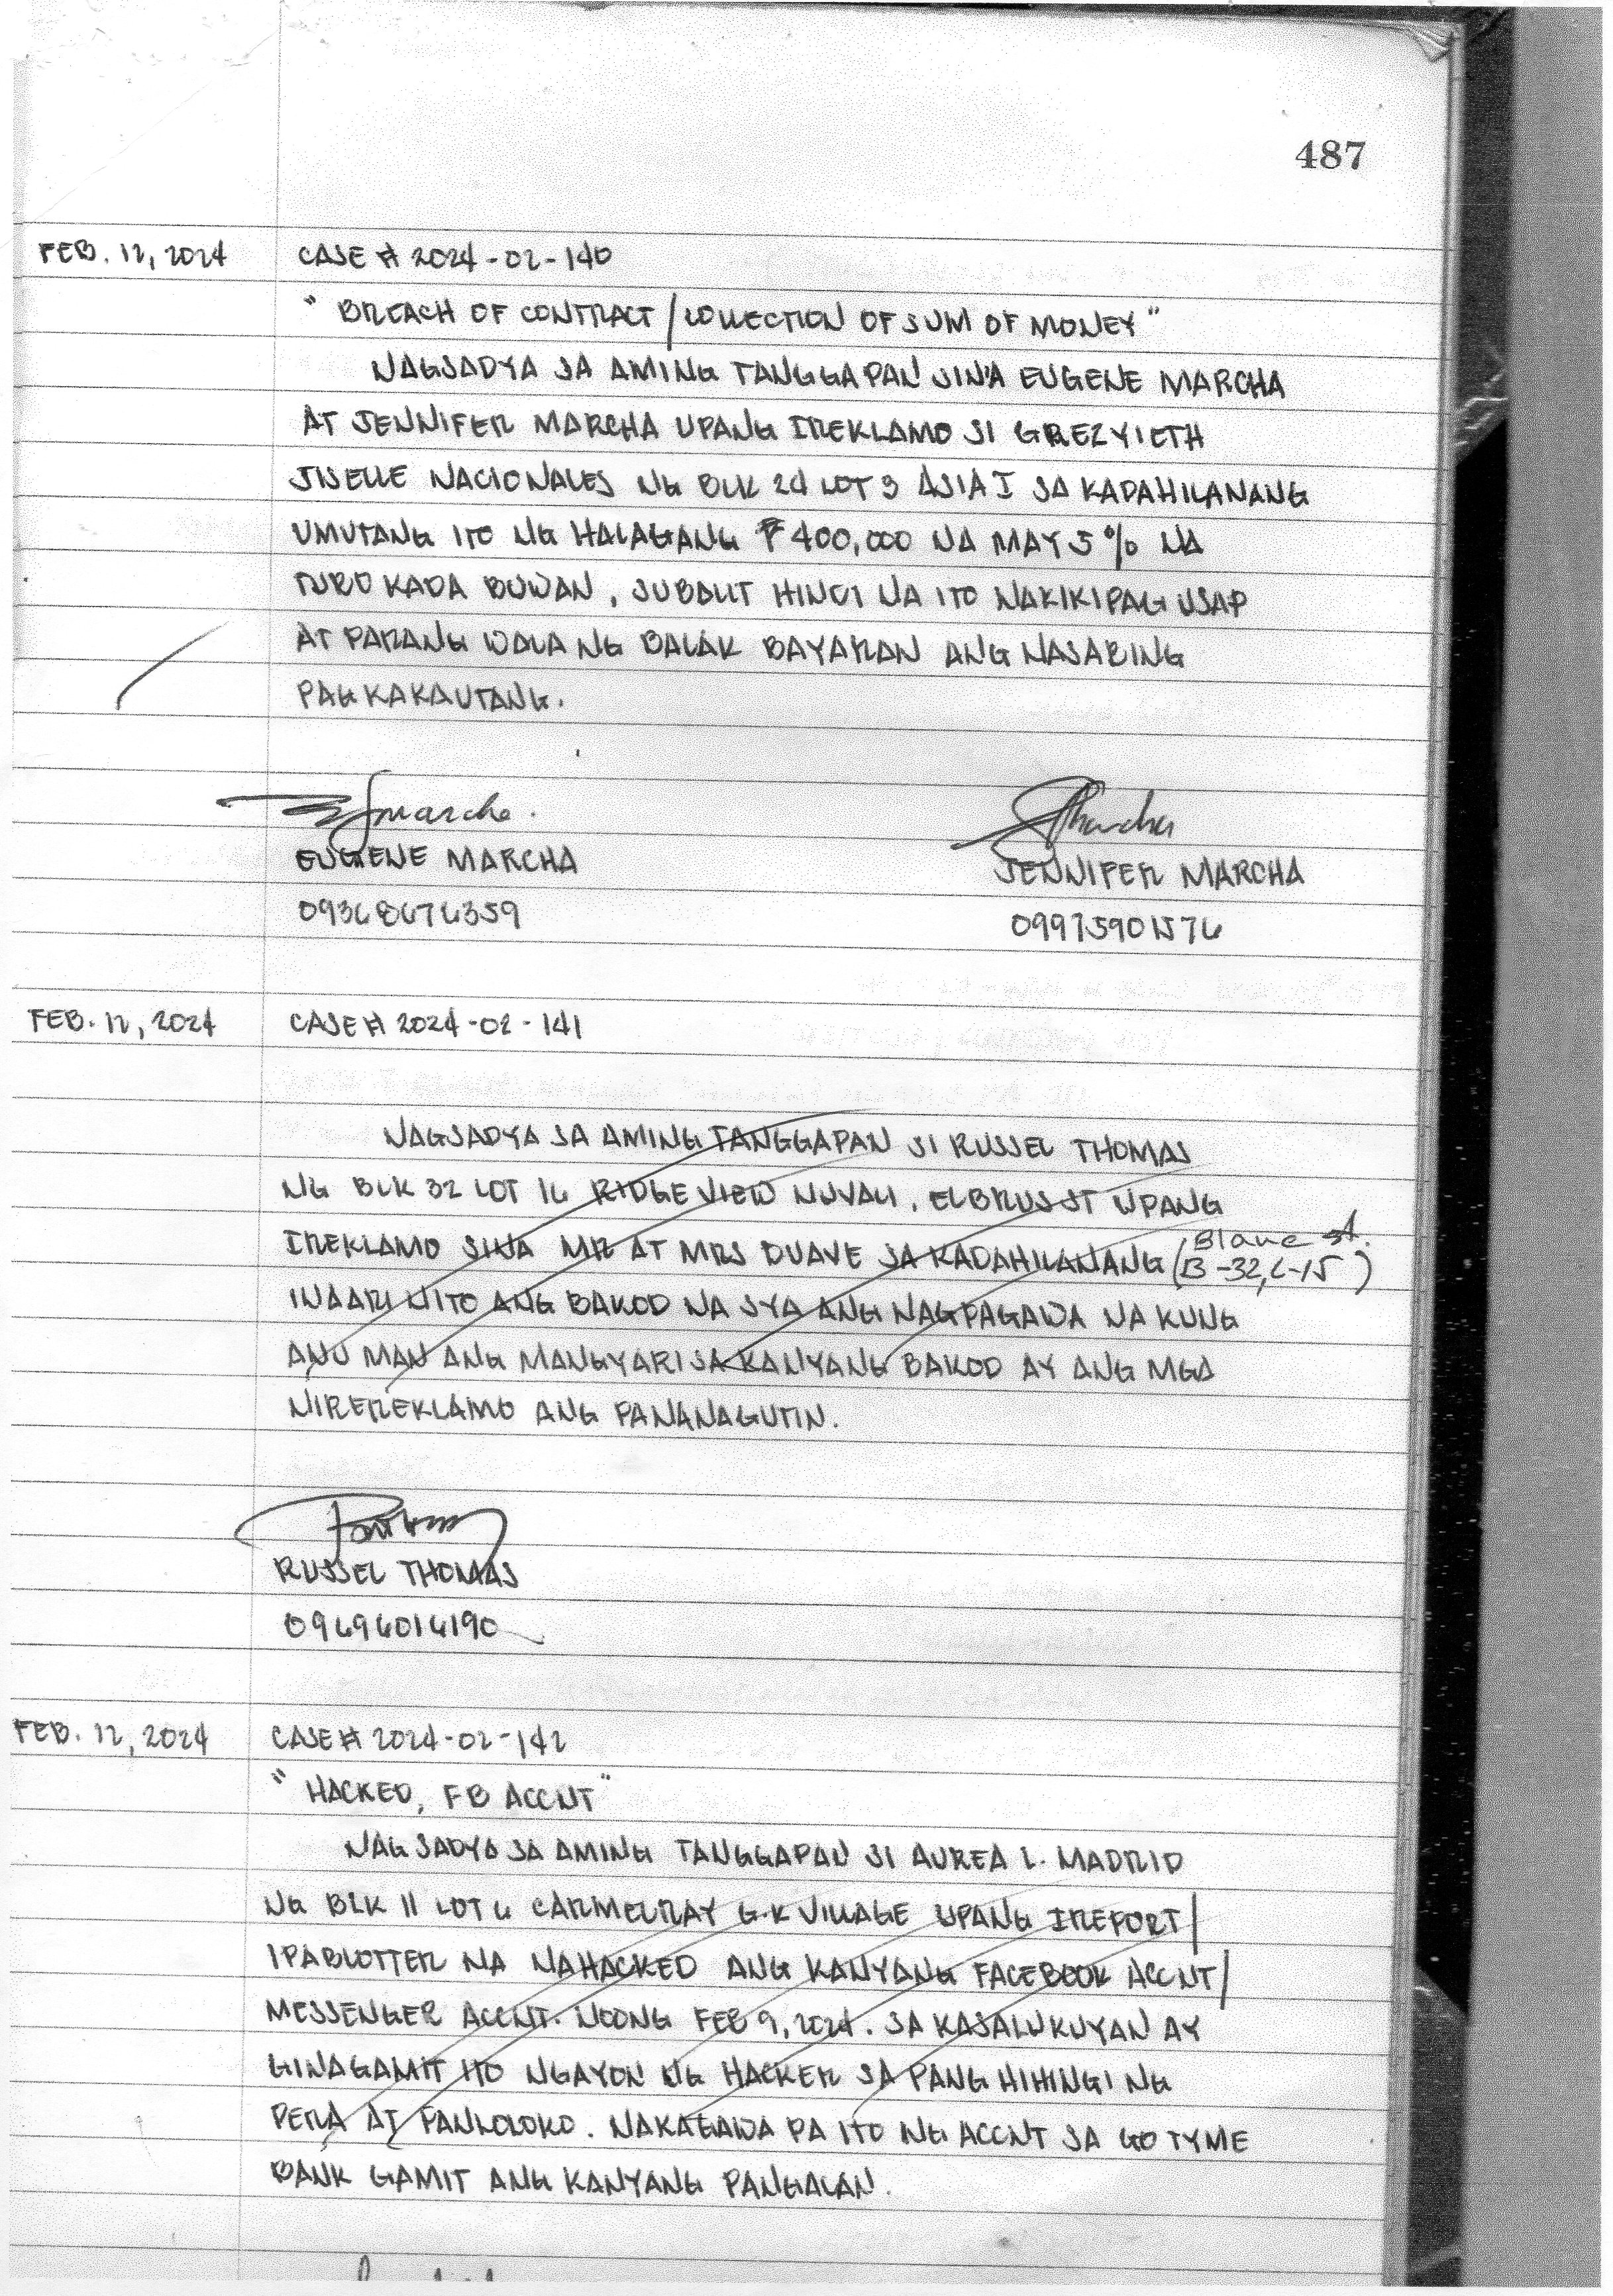 487
FEB. 12, 2024 CASE # 2024-02-140
" BREACH OF CONTRACT / COLLECTION OF SUM OF MONEY "
NAGSADYA SA AMING TANGGAPAN SINA EUGENE MARCHA
AT JENNIFER MARCHA UPANG IREKLAMO SI GREZYIETH
JISELLE NACIONALES NG BLK 24 LOT 3 ASIA I SA KADAHILANANG
UMUTANG ITO NG HALAGANG ₱400,000 NA MAY 5% NA
TUBO KADA BUWAN, SUBALIT HINDI NA ITO NAKIKIPAG USAP
AT PARANG WALA NG BALAK BAYARAN ANG NASABING
PAGKAKAUTANG.
EUGENE MARCHA JENNIFER MARCHA
09368676359 09975901576
FEB. 12, 2024 CASE # 2024-02-141
NAGSADYA SA AMING TANGGAPAN SI RUSSEL THOMAS
NG BLK 32 LOT 16 RIDGEVIEW NUVALI, ELBRUS ST UPANG
IREKLAMO SINA MR AT MRS DUAVE SA KADAHILANANG (Blanc st. B-32, L-15)
INAARI NITO ANG BAKOD NA SYA ANG NAGPAGAWA NA KUNG
ANU MAN ANG MANGYARI SA KANYANG BAKOD AY ANG MGA
NIREREKLAMO ANG PANANAGUTIN.
RUSSEL THOMAS
09696016190
FEB. 12, 2024 CASE # 2024-02-142
" HACKED, FB ACCNT "
NAGSADYA SA AMING TANGGAPAN SI AUREA L. MADRID
NG BLK 11 LOT 6 CARMELRAY G.K VILLAGE UPANG IREPORT/
IPABLOTTER NA NAHACKED ANG KANYANG FACEBOOK ACCNT/
MESSENGER ACCNT. NOONG FEB 9, 2024. SA KASALUKUYAN AY
GINAGAMIT ITO NGAYON NG HACKER SA PANGHIHINGI NG
PERA AT PANLOLOKO. NAKAGAWA PA ITO NG ACCNT SA GO TYME
BANK GAMIT ANG KANYANG PANGALAN.